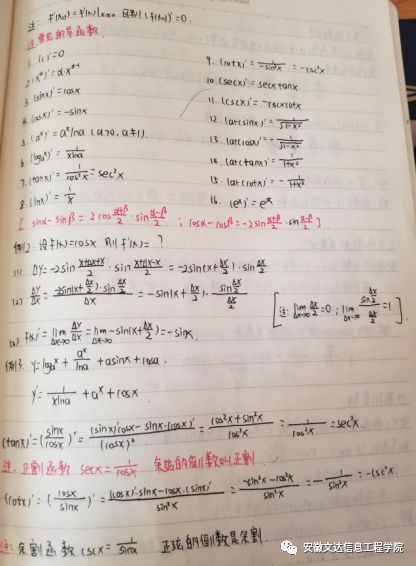 注: f'(x₀) = f'(x)|x=x₀ 区别 (f(x₀))' = 0.
注: 常见的导函数.
1. (c)' = 0
2. (x^α)' = α·x^(α-1)
3. (sinx)' = cosx
4. (cosx)' = -sinx
5. (a^x)' = a^x lna (a>0, a≠1).
6. (logₐx)' = 1/(xlna)
7. (tanx)' = 1/cos²x = sec²x
8. (lnx)' = 1/x
9. (cotx)' = -1/sin²x = -csc²x
10. (secx)' = secxtanx
11. (cscx)' = -cscxcotx
12. (arcsinx)' = 1/√(1-x²)
13. (arccosx)' = -1/√(1-x²)
14. (arctanx)' = 1/(1+x²)
15. (arccotx)' = -1/(1+x²)
16. (e^x)' = e^x
[ sinα-sinβ = 2cos (α+β)/2 · sin (α-β)/2 ; cosα-cosβ = -2sin (α+β)/2 · sin (α-β)/2 ]
例12. 设f(x)=cosx 则f'(x)= ?
(1) Δy = -2sin (x+Δx+x)/2 · sin (x+Δx-x)/2 = -2sin(x+Δx/2)·sin Δx/2
(2) Δy/Δx = -2sin(x+Δx/2)·sin Δx/2 / Δx = -sin(x+Δx/2)· sin Δx/2 / Δx/2
[注: lim Δx→0 Δx/2 = 0 ; lim Δx→0 sin Δx/2 / Δx/2 = 1]
(3) f'(x) = lim Δx→0 Δy/Δx = lim Δx→0 -sin(x+Δx/2) = -sinx.
例13. y = logₐx + a^x/lna + asinx + cosa.
y' = 1/(xlna) + a^x + cosx
(tanx)' = (sinx/cosx)' = ((sinx)'cosx - sinx·(cosx)')/(cosx)² = (cos²x+sin²x)/cos²x = 1/cos²x = sec²x
注: 正割函数 secx = 1/cosx 余弦的倒数叫正割
(cotx)' = (cosx/sinx)' = ((cosx)'·sinx - cosx·(sinx)')/sin²x = (-sin²x-cos²x)/sin²x = -1/sin²x = -csc²x
注: 余割函数 cscx = 1/sinx 正弦的倒数是余割
安徽文达信息工程学院